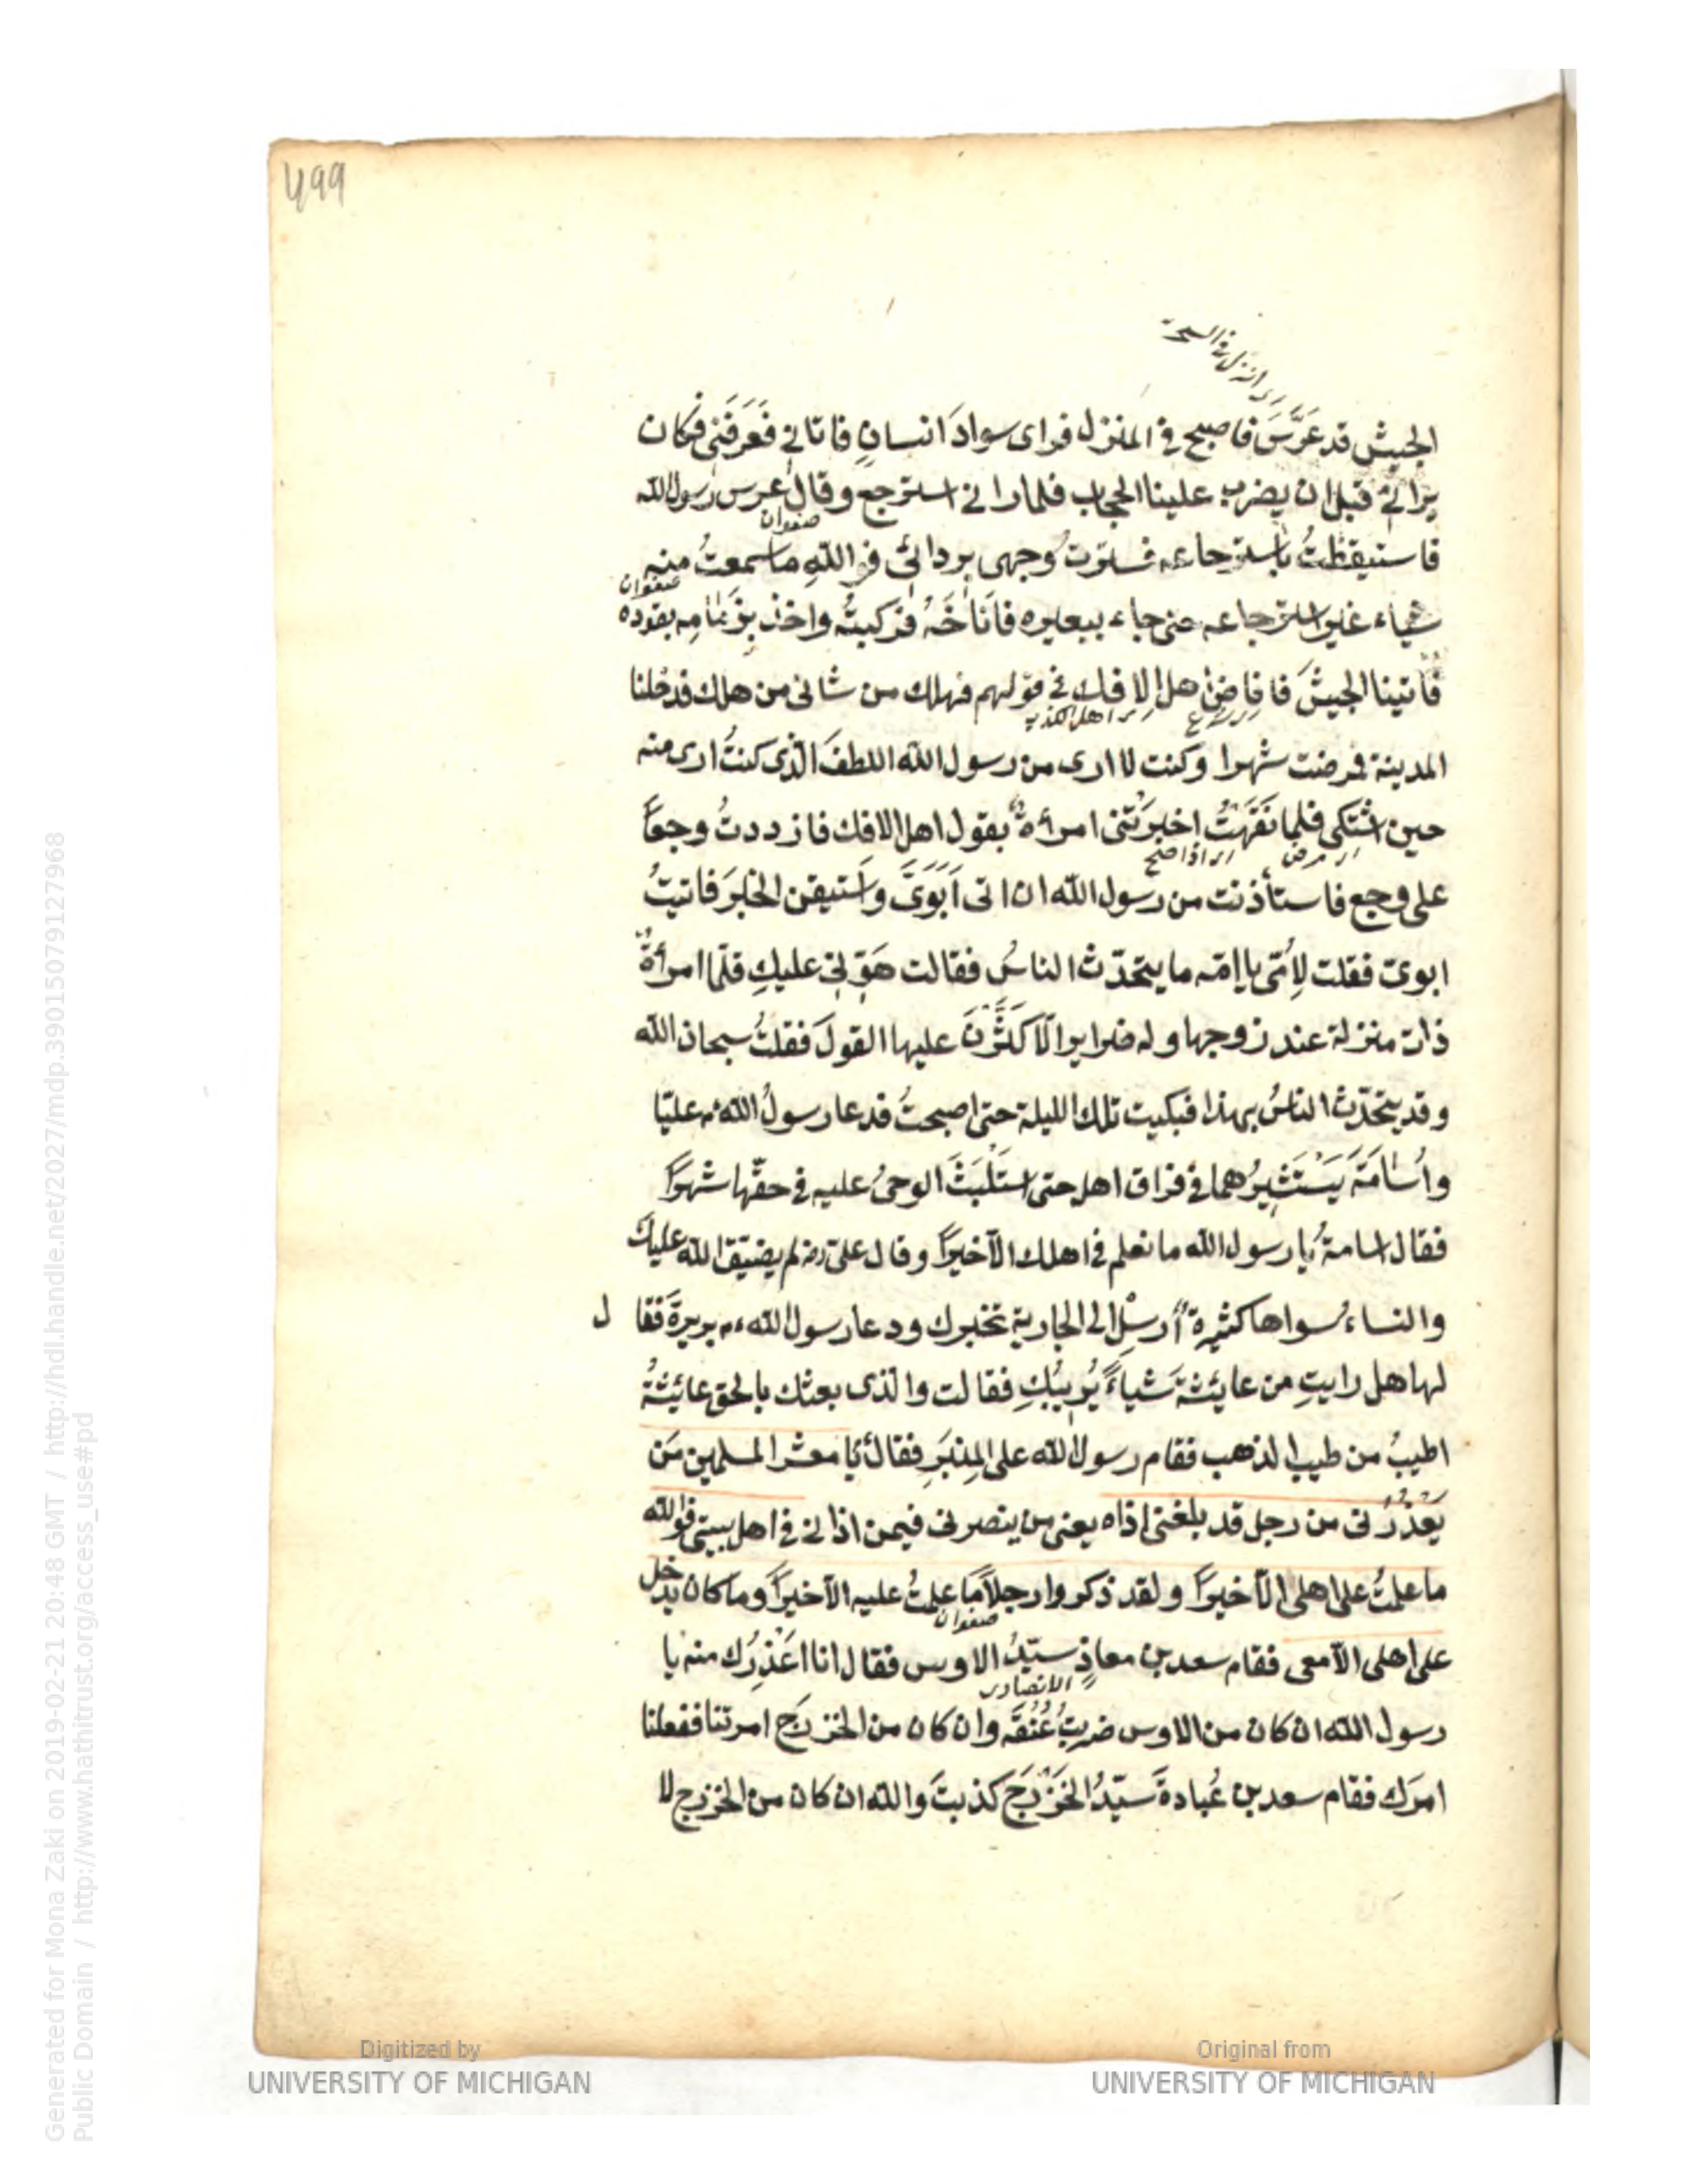 499
الجيش قد عَرَّسَ فاصبح في المنزل فراى سوادَ انسانٍ فاتاني فَعَرَفَنِي فكان
يراني قبل ان يضرب علينا الحجاب فلما رانى استرجع وقال عرس رسول الله
صفوان
فاستيقظتُ باسترجاعه فسترت وجهى بردائى فوالله ماسمعتُ منه
صفوان
شياء غير استرجاعه حتى جاء ببعيره فاَناخَهُ فركبتُه واخذ بزمامه يقوده
فاتينا الجيشَ فافاض اهل الافك في قولهم فهلك من شانى من هلك فدخلنا
اى اهل الكذب
المدينة فمرضت شهرا وكنت لا ارى من رسول الله اللطفَ الّذى كنتُ ارى منه
حين اشتكى فلما نَقَهْتُ اخبرَتْنى امرأةٌ بقول اهل الافك فازددتُ وجعًا
اى مرض اى اذا صح
على وجع فاستأذنت من رسول الله ان اتى اَبَوَىَّ واَستيقن الخبرَ فاتيتُ
ابوىّ فقلت لِاُمّى يا امّه ما يتحدّث الناسُ فقالت هَوِّنى عليكِ قلّما امرأةٌ
ذات منزلة عند زوجها وله ضراير الّا كَثَّرْنَ عليها القولَ فقلتُ سبحان الله
وقد يتحدّث الناسُ بهذا فبكيت تلك الليلة حتى اصبحتُ فدعا رسولُ الله عم عليّا
واُسامَةَ يَسْتَشِيرُهما في فراق اهله حتى اسْتَلْبَثَ الوحىُ عليه في حقّها شهرًا
فقال اسامةُ يا رسول الله ما نعلم في اهلك الّا خيرًا وقال علىّ رضه لم يضيّق الله عليك
والنساءُ سواها كثيرة أرسِلْ الى الجارية تخبرك ودعا رسول الله عم بريرةَ فقا ل
لها هل رايتِ من عايشةَ شياءً يُرِيبُكِ فقالت والّذى بعثك بالحق عائشةُ
اطيبُ من طيب الذهب فقام رسول الله على المِنبَرِ فقال يا معشر المسلمين مَن
يَعذُرُنى من رجل قد بلغنى اذاه يعنى من ينصرنى فيمن اذانى في اهل بيتى فوالله
ما علمتُ على اهلى الّا خيرًا ولقد ذكروا رجلاً ما علمتُ عليه الّا خيرًا وما كان يدخل
صفوان
على اهلى الّا معى فقام سعد بن معاذٍ سيّدُ الاوس فقال انا اعْذِرُك منه يا
الانصارى
رسول الله ان كان من الاوس ضربتُ عُنُقَه وان كان من الخزرَج امرتنا ففعلنا
امرَك فقام سعد بن عُبادةَ سَيّدُ الخَزْرَج كذبتَ والله ان كان من الخزرج لا
Digitized by
UNIVERSITY OF MICHIGAN
Original from
UNIVERSITY OF MICHIGAN
Generated for Mona Zaki on 2019-02-21 20:48 GMT / http://hdl.handle.net/2027/mdp.39015079127968
Public Domain / http://www.hathitrust.org/access_use#pd